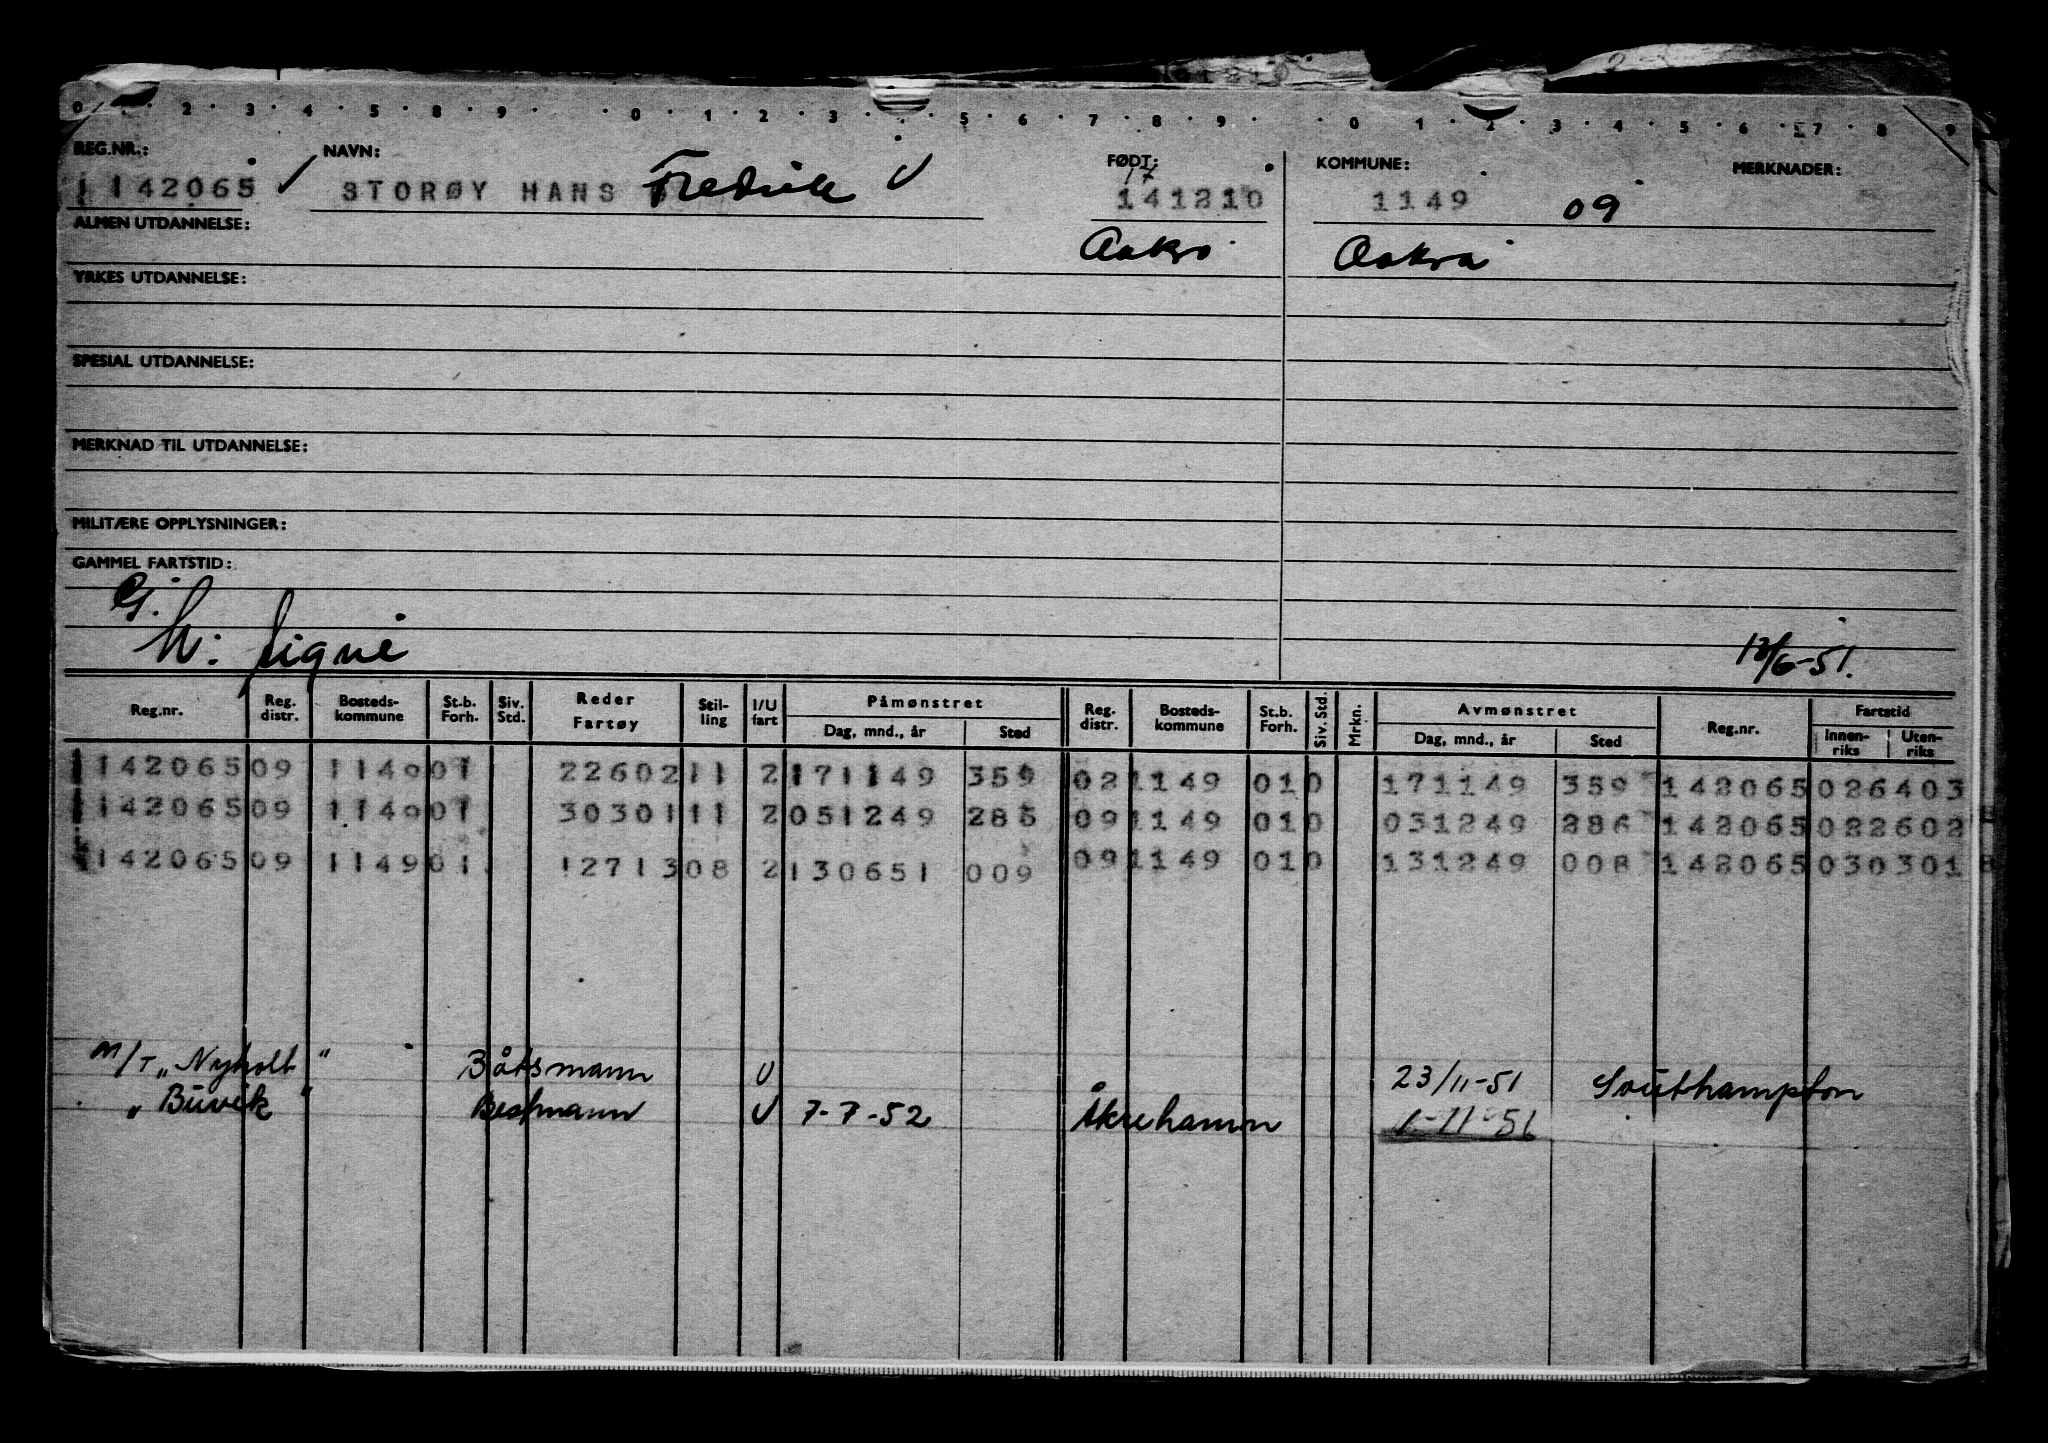 0 1 2 3 4 5 8 9 0 1 2 3 5 6 7 8 9 0 1 2 3 4 5 6 7 8 9
REG.NR.: NAVN: FØDT: KOMMUNE: MERKNADER:
17
1142065 ✓ STORØY HANS Fredrik V 141210 1149 09
ALMEN UTDANNELSE: Aakra Aakra
YRKES UTDANNELSE:
SPESIAL UTDANNELSE:
MERKNAD TIL UTDANNELSE:
MILITÆRE OPPLYSNINGER:
GAMMEL FARTSTID:
Gj.
W: Signe 13/6-51.
Reg.nr. Reg. distr. Bosteds-kommune St.b. Forh. Siv. Std. Reder Fartøy Stil-ling I/U fart Påmønstret Dag, mnd., år Sted Reg. distr. Bosteds-kommune St.b. Forh. Siv. Std. Mrkn. Avmønstret Dag, mnd., år Sted Reg.nr. Fartstid Innen-riks Uten-riks
1142065 09 1149 01 22602 11 2 171149 359 02 1149 01 0 171149 359 1142065 026403
1142065 09 1149 01 30301 11 2 051249 286 09 1149 01 0 031249 286 1142065 022602
1142065 09 1149 01 12713 08 2 130651 009 09 1149 01 0 131249 008 1142065 030301
M/T "Nyholt" Båtsmann U 23/11-51 Southampton
" Buvik " Bestmann U 7-7-52 Åkrehamn 1-11-56